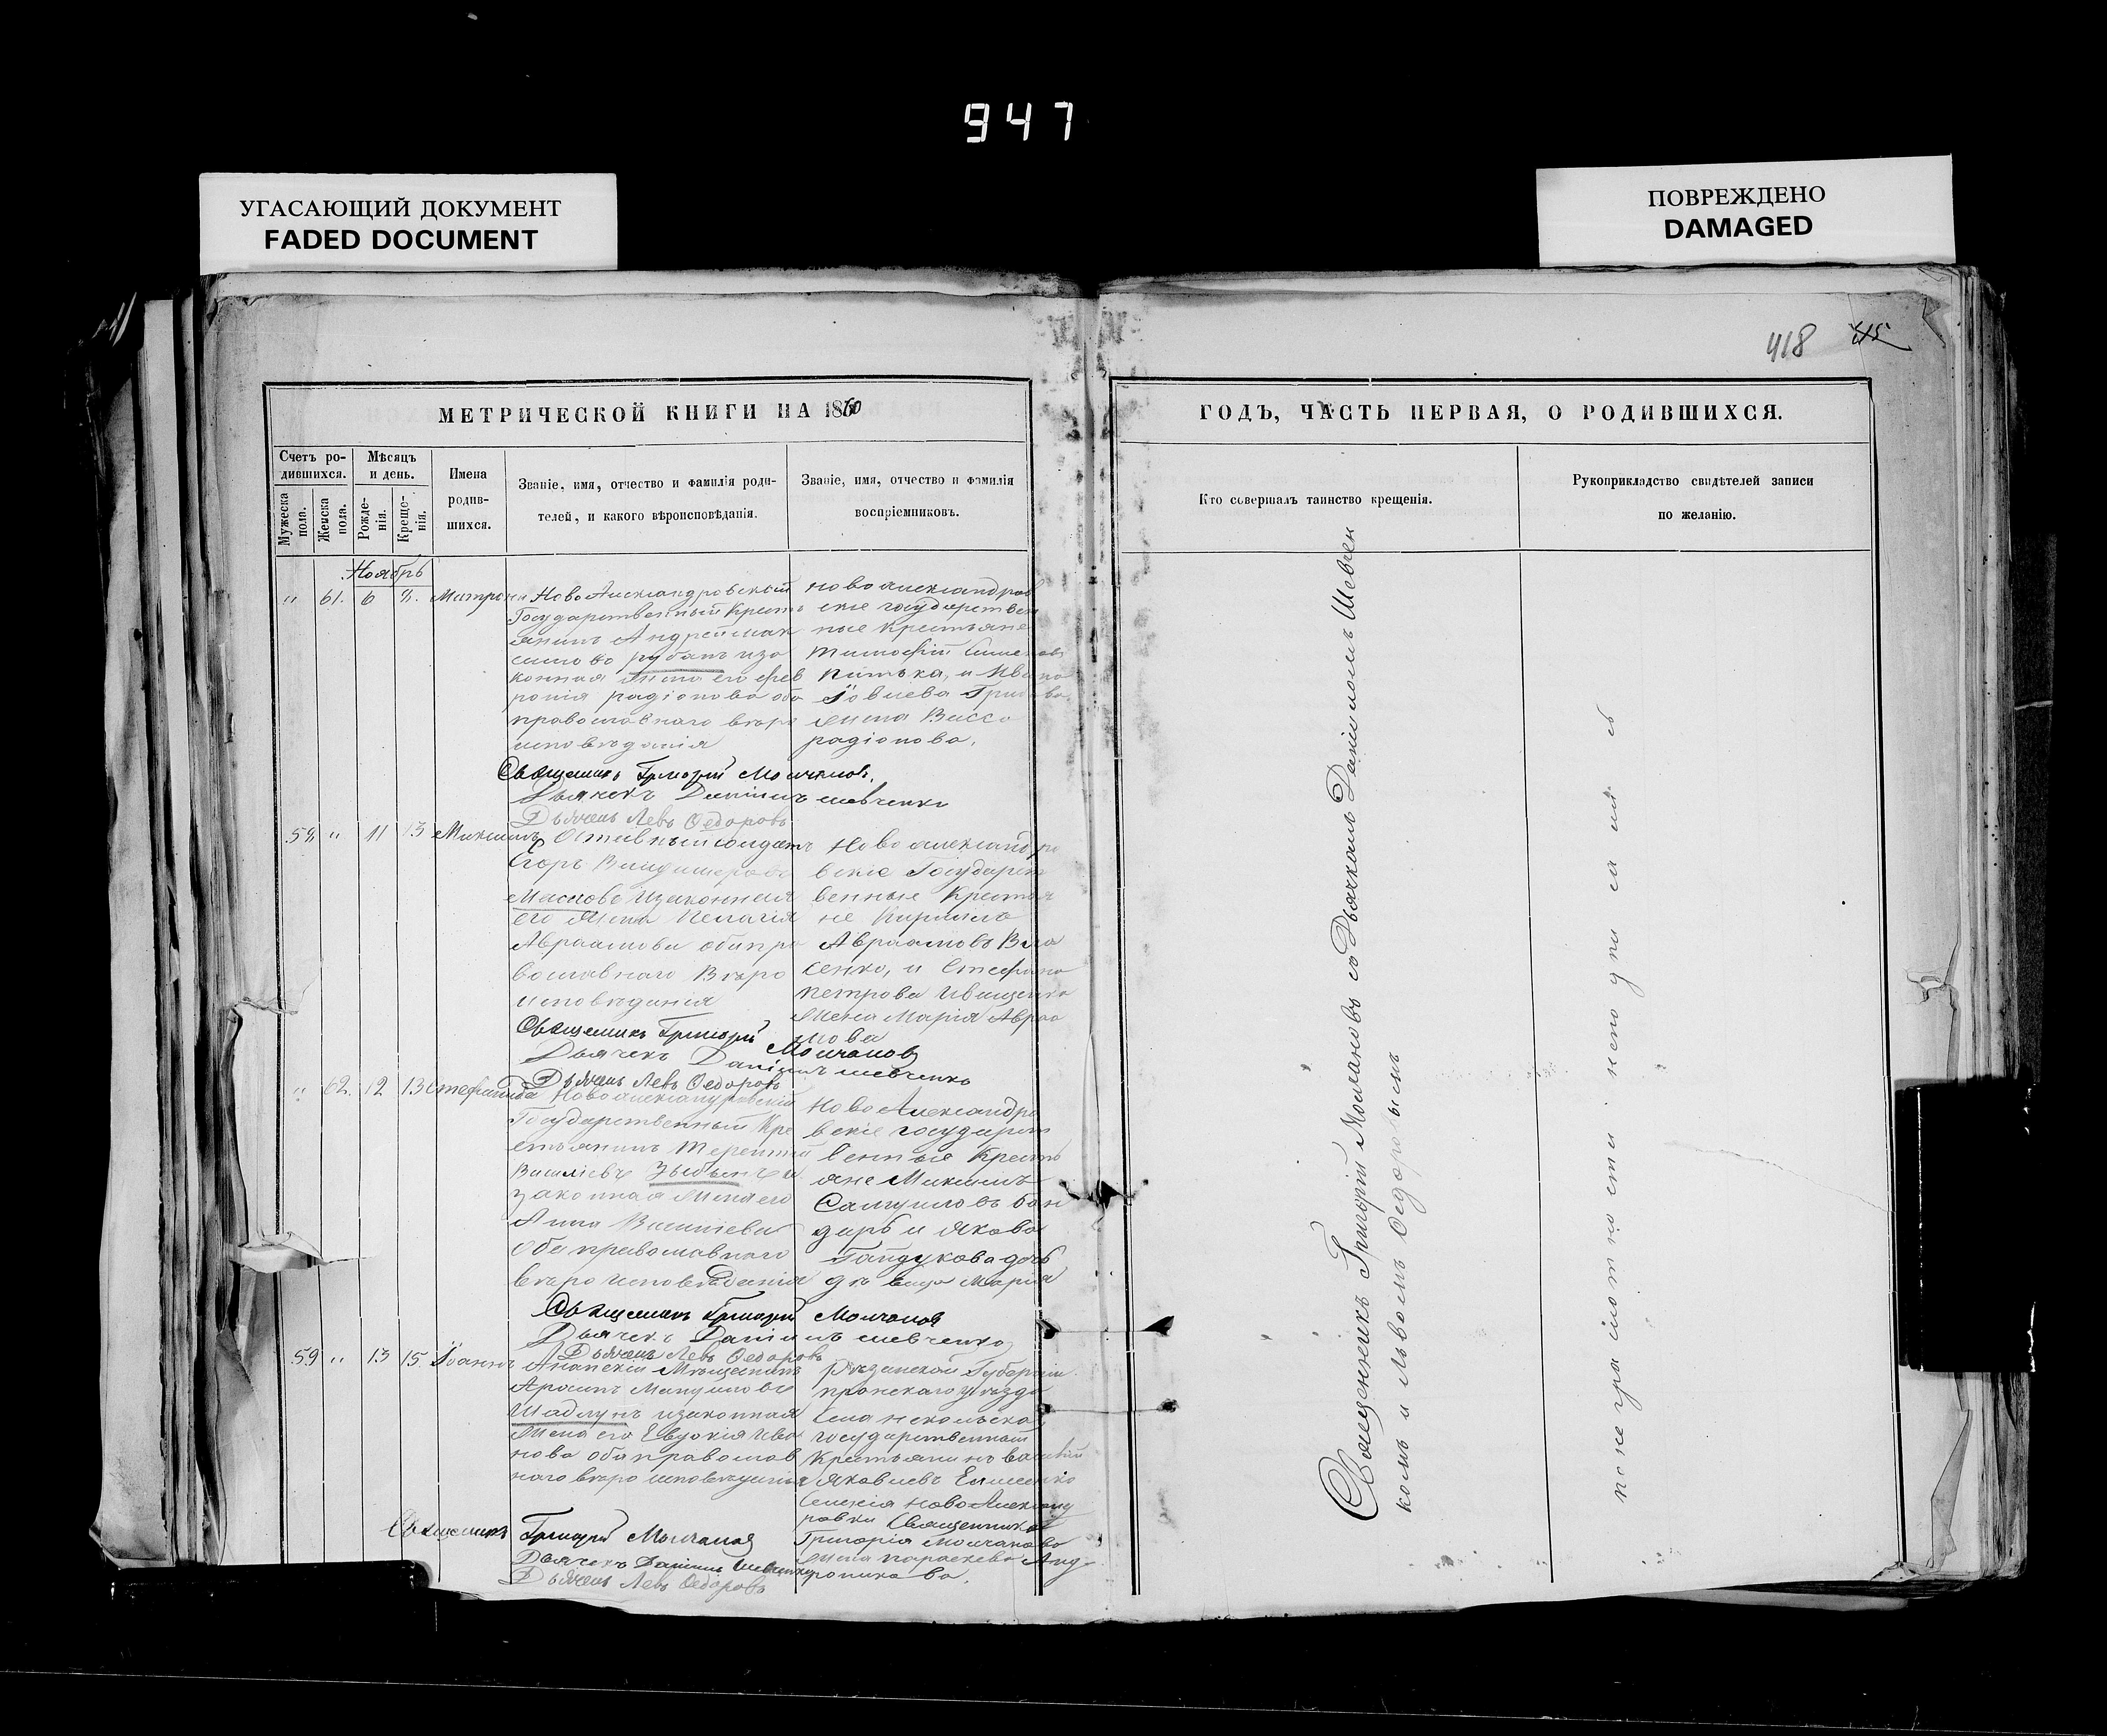 947
УГАСАЮЩИЙ ДОКУМЕНТ
FADED DOCUMENT
ПОВРЕЖДЕНО
DAMAGED
418 415
МЕТРИЧЕСКОЙ КНИГИ НА 1860
ГОДЪ, ЧАСТЬ ПЕРВАЯ, О РОДИВШИХСЯ.
Счетъ ро-
дившихся.
Мужеска
пола.
Женска
пола.
Мѣсяцъ
и день.
Рожде-
нія.
Креще-
нія.
Имена
родив-
шихся.
Званіе, имя, отчество и фамилія роди-
телей, и какого вѣроисповѣданія.
Званіе, имя, отчество и фамилія
воспріемниковъ.
Кто совершалъ таинство крещенія.
Рукоприкладство свидѣтелей записи
по желанію.
Ноябрь
" 61. 6 8. Матрона
Ново Александровскій
Государственный Кресть
янинъ Андрей Мак
симовъ иза
конная жена его Фев
ронія радіонова оба
православнаго вѣро
исповѣданія
Новоалександров
скіе государствен
ные крестьяне
тимофій
и Ива
Іовлева
жена Васса
радіонова.
Священикъ Григорій Молчановъ.
Дьячекъ Даніилъ шевченко
Дьячекъ Левъ Ѳедоровъ
58 " 11 13 Максимъ
Отставный солдатъ
Егоръ
Масловъ изаконная
его жена Пелагія
Авраамова оба пра
вославнаго Вѣро
исповѣданія
Новоалександро
вскіе Государст
венные Крестья
не Кирилло
Авраамовъ Вла
сенко, и Стефана
петрова Иващенко
жена Марія Авраа
мова
Священикъ Григорій Молчановъ
Дьячекъ Даніилъ шевченко
Дьячекъ Левъ Ѳедоровъ
" 62. 12 13 Стефанида
Новоалександровскій
Государственный Кре
стьянинъ Терентій
Василіевъ и
законная жена его
Анна Василіева
оба православнаго
вѣро исповѣданія
Ново Александро
вскіе государст
венные Кресть
яне Максимъ
Самуиловъ бон
дарь и Якова
Гайдукова дочь
дѣвица Марія
Священикъ Григорій Молчановъ
Дьячекъ Даніилъ шевченко
Дьячекъ Левъ Ѳедоровъ
59 " 13 15. Іоаннъ
Анапскій Мѣщанинъ
Мануиловъ
Шадлунъ изаконная
жена его Евдокія Ива
нова оба православ
наго вѣро исповѣданія
Рязанской Губерніи
пронскаго уѣзда
села
государственный
Крестьянинъ василій
Яковлевъ
селенія Ново Александ
ровки Священника
Григорія Молчанова
жена параскева Анд-
роникова.
Священикъ Григорій Молчановъ
Дьячекъ Даніилъ Шевченко
Дьячекъ Левъ Ѳедоровъ
Священникъ Григорій Молчановъ съ Дьячкомъ Даніиломъ Шевчен
комъ и Львомъ Ѳедоровымъ
по неграмотности неподписались